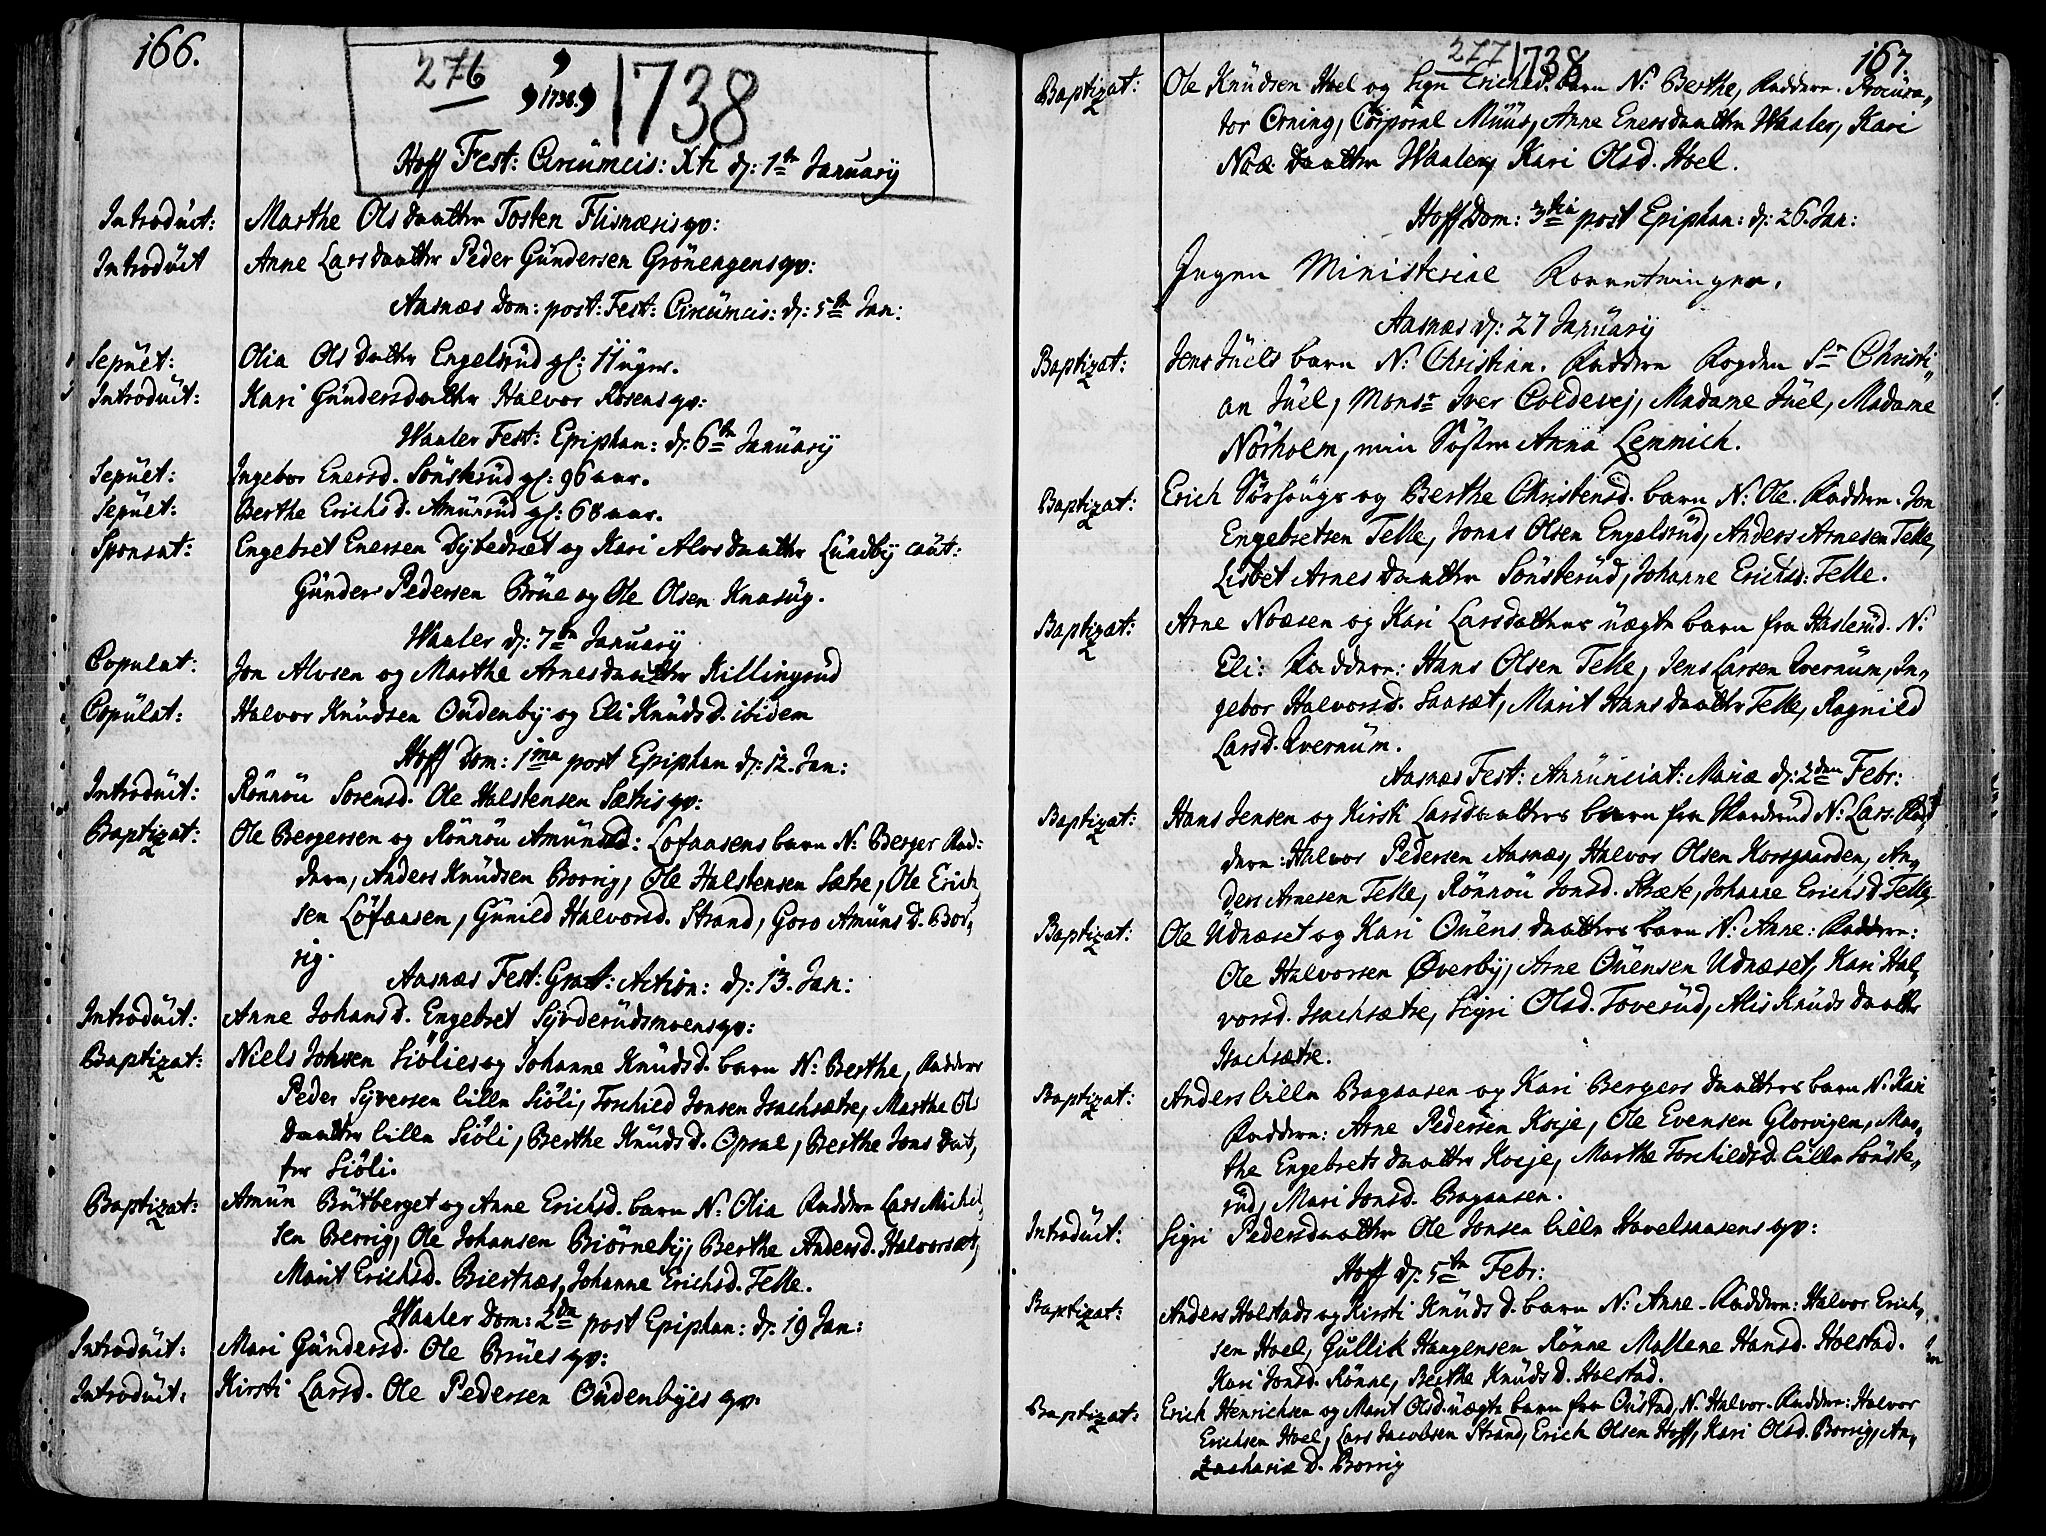 166.
276
1738
1738
Hoff Fest: Circumcis: Xti d: 1te January
Introduct: Marthe Olsdaatter Tosten Flisnæsis qv:
Introduct Anne Larsdaatter Peder Gundersen Grönengens qv:
Aasnæs Dom: post: Fest: Circumcis: d: 5te Jan:
Sepult: Olia Olsdatter Engelsrud gl: 11 uger.
Introduct: Kari Gundersdatter Halvor Rosens qv:
Waaler Fest: Epiphan: d: 6te January
Sepult: Ingebor Enersd. Sönsterud gl: 96 aar.
Sepult: Berthe Erichsd. Amünrud gl: 68 aar.
Sponsat: Engebret Enersen Dybedræt og Kari Alvsdaatter Lundby caut:
Gunder Pedersen Brüe og Ole Olsen Knasug.
Waaler d: 7te January
Copulat: Jon Alvsen og Marthe Arnesdaatter Killingrud
Copulat: Halvor Knudsen Oudenby og Eli Knudsd. ibidem
Hoff Dom: 1ma post Epiphan d: 12. Jan:
Introduct: Rönnöu Sorensd. Ole Halstensen Sætris qv:
Baptizat: Ole Bergersen og Rönnöu Amündsd: Lofaasens barn N: Berger Fad:
derne, Anders Knudsen Borrig, Ole Halstensen Sætre, Ole Erich
sen Löfaasen, Gunild Halvorsd. Strand, Goro Amuns D. Bor,
rig.
Aasnæs Fest: Grat: Action: d: 13. Jan:
Introduct: Anne Johansd. Engebret Syvderudsmoens qv:
Baptizat: Niels Johsen Siölies og Johanne Knudsd. barn N: Berthe, Faddere
Peder Syversen lille Siöli, Torchild Jonsen Isachsætre, Marthe Ols
daatter lille Siöli, Berthe Knudsd. Opsal, Berthe Jons Dat,
ter Siöli.
Baptizat: Amün Butberget og Anne Erichsd. barn N: Olia Faddere Lars Michel
sen Berrig, Ole Johansen Biörneby, Berthe Andersd. Halvorsæt,
Marit Erichsd. Biertnæs, Johanne Erichsd. Felle.
Waaler Dom: 2da post Epiphan: d: 19 Jan:
Introduct: Mari Gundersd. Ole Brües qv:
Introduct: Kirsti Larsd. Ole Pedersen Oudenbyes qv.
277 1738 167.
Baptizat: Ole Knudsen Hoel og Sign Erichsd. barn N: Berthe, Faddere. Procura,
tor Orning, Corporal Müus, Anne Enersdaatter Waaler, Kari
Noæ Daatter Waaler, Kari Olsd. Hoel.
Hoff Dom: 3tia post Epiphan: d: 26. Jan:
Ingen Ministerial Forretninger.
Aasnæs d: 27 January
Baptizat: Jens Juels barn N: Christian. Faddere Fogden Sr Christi,
an Juel, Monsr Iver Coldevej, Madame Juel, Madame
Nörholm, min Söster Anna Lemmich.
Baptizat: Erich Sörhougs og Berthe Christensd. barn N: Ole. Faddere. Jon
Engebretsen Telle, Jonas Olsen Engelsrud, Anders Arnesen Telle,
Lisbet Arnesdaatter Sönsterud, Johanne Erichsd: Felle.
Baptizat: Arne Noæsen og Kari Larsdatters uægte barn fra Haslerud. N:
Eli: Faddere: Hans Olsen Telle, Jens Larsen Qvernum, In,
gebor Halvorsd. Saasæt, Marit Hansdaatter Telle, Ragnild
Larsd. Qvernum.
Aasnæs Fest: Annunciat: Mariæ d: 2den Febr:
Baptizat: Hans Jensen og Kirsti Larsdaatters barn fra N: Lars. Fad,
dere: Halvor Pedersen Aasnæs, Halvor Olsen Korsgaarden, An,
ders Arnesen Telle, Rönnöu Jonsd. Stræte, Johanne Erichsd. Telle.
Baptizat: Ole Udnæset og Kari Ouens daatters barn N: Anne: Faddere:
Ole Halvorsen Øverby, Arne Ouensen Udnæset, Kari Hal,
vorsd. Isachsætre, Sigri Olsd. Toverud, Alis Knuds daatter
Isachsætre.
Baptizat: Anders lille Bagaasen og Kari Bergers daatters barn N: Kari
Faddere: Arne Pedersen Koje, Ole Evensen Glorvigen, Mar,
the Engebrets daatter Koje, Marthe Torchildsd. lille Sönste,
rud, Mari Jonsd. Bagaasen.
Introduct: Sigri Pedersdaatter Ole Jonsen lille Havelsaasens qv:
Hoff d: 5te Febr:
Baptizat: Anders Holstads og Kirsti Knuds D. barn N: Anne. Faddere: Halvor Erich,
sen Hoel, Gullik Haagensen Rönne Mallene Hansd. Holstad.
Kari Jonsd. Rönne, Berthe Knuds D. Holstad.
Baptizat: Erich Henrichsen og Marit Olsd. uægte barn fra Oustad, N: Halvor. Faddere: Halvor
Erichsen Hoel, Lars Jacobsen Strand, Erich Olsen Hoff, Kari Olsd. Borrig, An,
Zachariæ D. Borrig